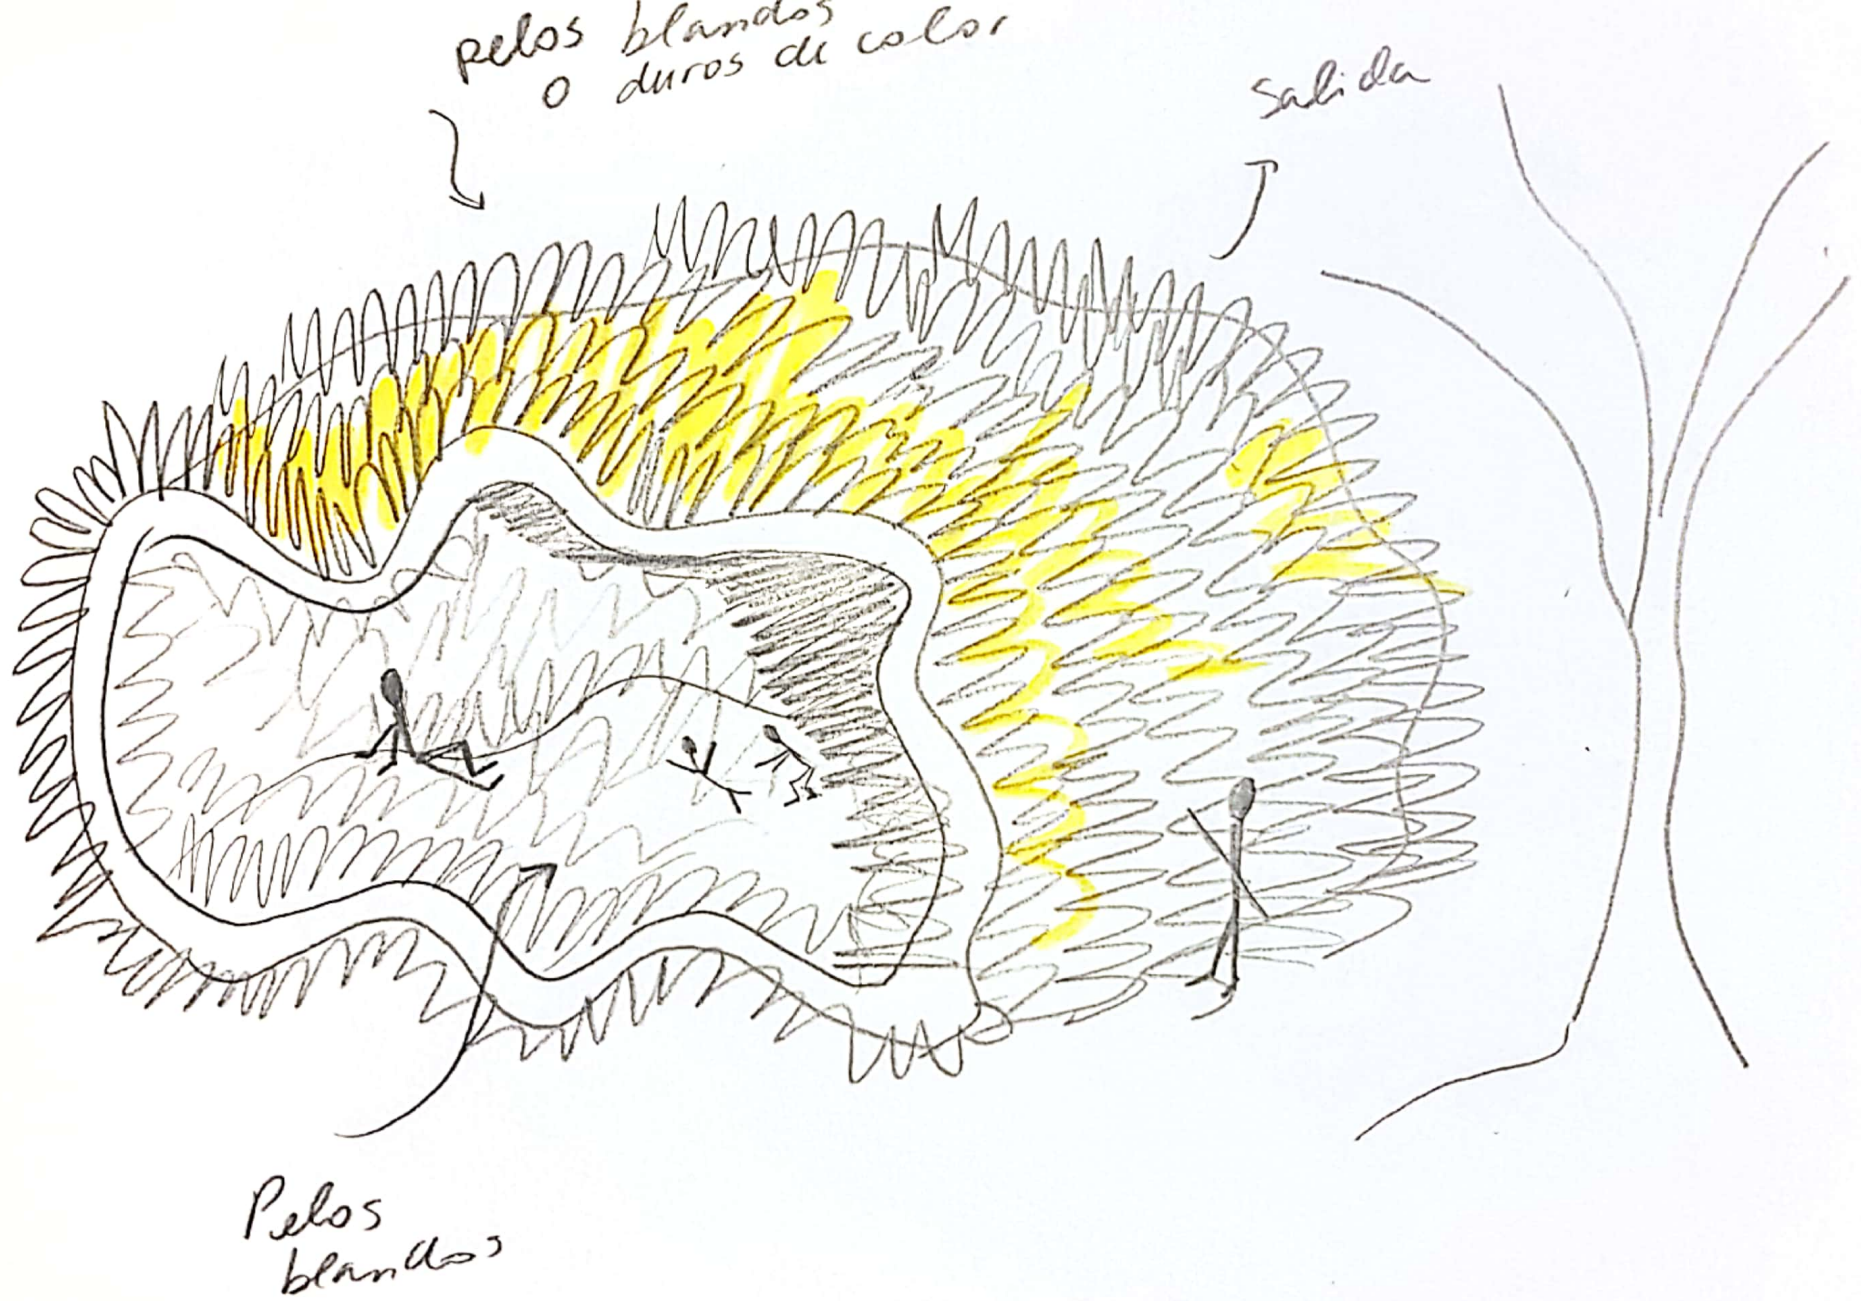 pelos blandos
o duros de color
salida
Pelos
blandos